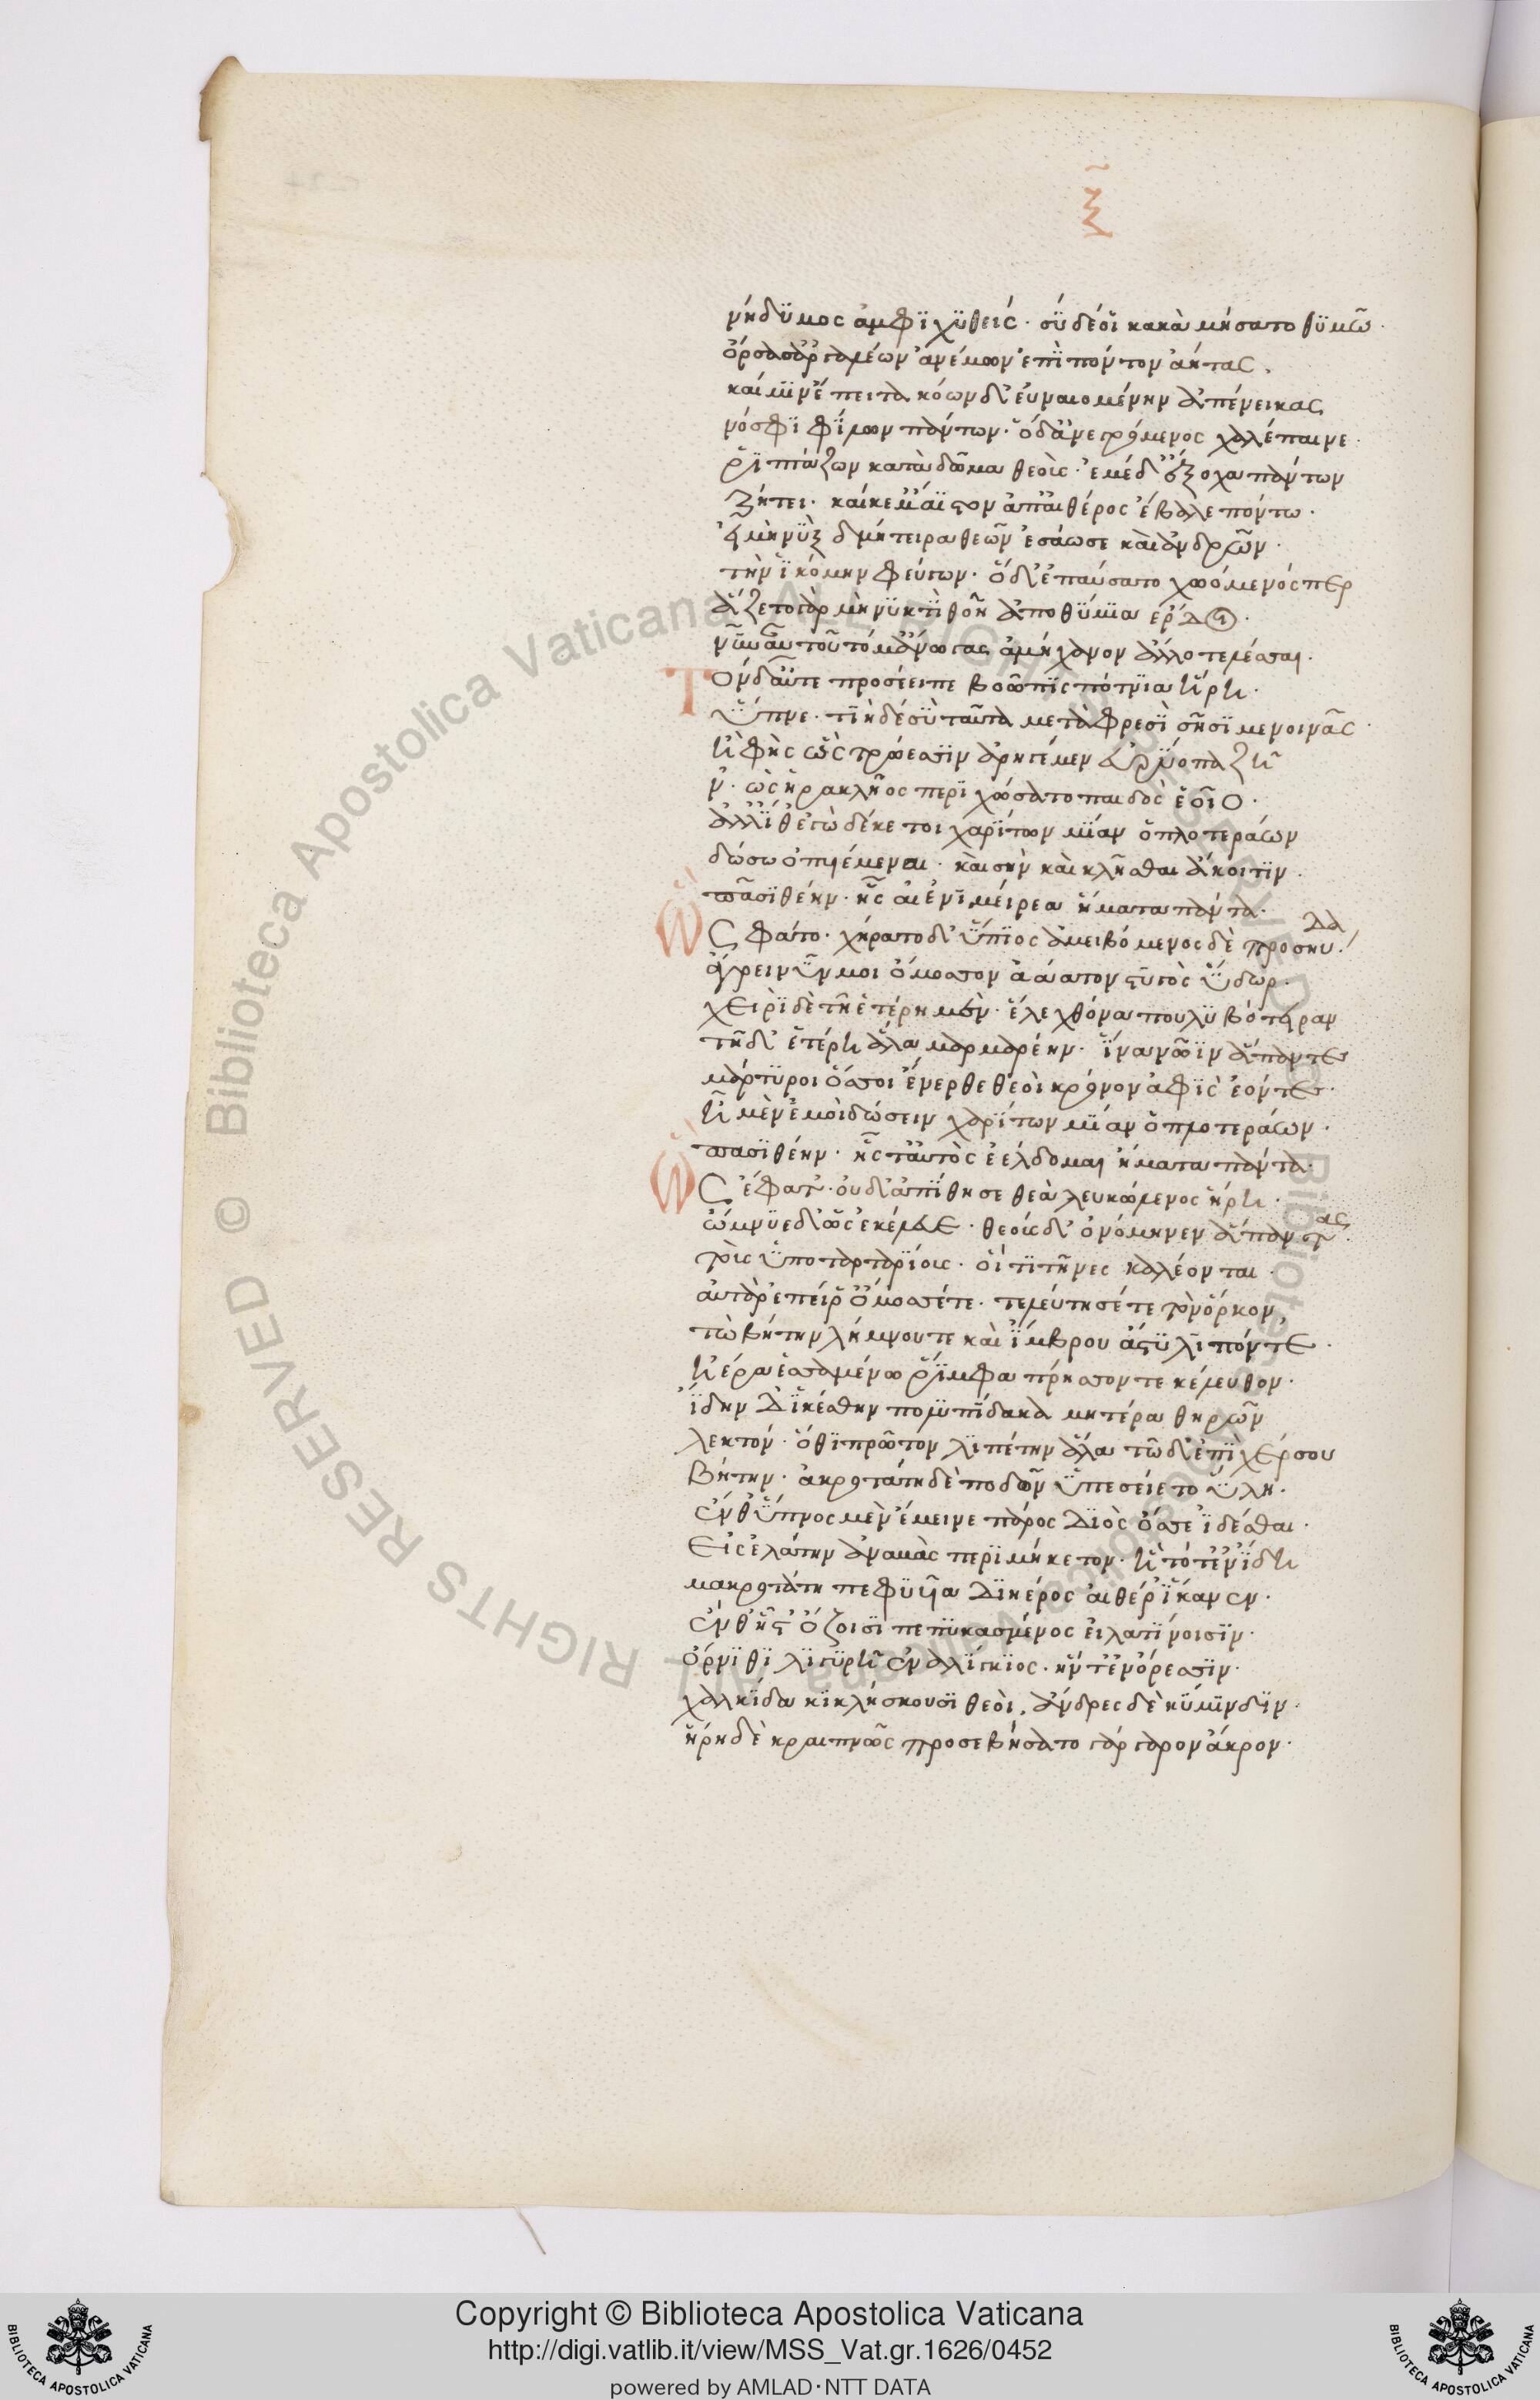 ξ̃
νήδϋμος ἀμφϊχϋθεὶς· σὺ δέ οἱ κακὰ μήσατο θϋμῶ·
ὄρσασ' ἀργαλέων ἀνέμων ἐπὶ πόντον ἀήτας.
καί μϊν ἔπειτα κόων δ' εὐναιομένην ἀπένεικας
νόσφϊ φίλων πάντων· ὁ δ' ἀνεγρόμενος χαλέπαινε·
ῥϊπτάζων κατὰ δῶμα θεοὺς· ἐμὲ δ' ἔξοχα πάντων
ζήτει· καί κε μ' ἄϊστον ἀπ' αἰθέρος ἔμβαλε πόντω·
εἰ μὴ νὺξ δμήτειρα θεῶν ἐσάωσε καὶ ἀνδρῶν·
τὴν ἱκόμην φεύγων· ὁ δ' ἐπαύσατο χωόμενός περ
ἅζετο γὰρ μὴ νϋκτὶ θοῆ ἀποθύμϊα ἔρδοι·
νῦν αὖ τοῦτό μ' ἄνωγας ἀμήχανον ἄλλο τελέσσαι.
Τὸν δ' αὖτε προσέειπε βοῶπϊς πότνϊα ἥρη·
ὕπνε· τῒ ἢ δὲ σὺ ταῦτα μετὰ φρεσὶ σῆσϊ μενοινᾶς·
ἢ φὴς ὣς τρώεσσϊν ἀρηγέμεν εὐρύοπα ζῆ
ν'· ὡς ἡρακλῆος περϊχώσατο παιδὸς ἑοῖο·
ἀλλ' ἴθ' ἐγὼ δέ κε τοι χαρΐτων μΐαν ὁπλοτεράων
δώσω ὀπυιέμεναι· καὶ σὴν καὶ κλῆσθαι ἄκοιτϊν·
πασϊθέην· ἧς αἰὲν ἱμείρεαι ἤματα πάντα·
Ὣς φάτο· χήρατο δ' ὕπνος ἀμειβόμενος δὲ προσηύδα
ἄγρει νῦν μοι ὄμοσσον ἀάατον στυγὸς ὕδωρ·
χειρὶ δὲ τῆ ἑτέρη μὲν· ἕλε χθόνα πουλϋβότειραν
τῆ δ' ἑτέρη ἅλα μαρμαρέην· ἵνα νῶϊν ἅπαντες
μάρτϋροι ὦσϊ οἱ ἔνερθε θεοὶ κρόνον ἀμφὶς ἐόντες·
ἦ μὲν ἐμοὶ δώσειν χαρΐτων μΐαν ὁπλοτεράων·
πασϊθέην· ἧς τ' αὐτὸς ἐέλδομαι ἤματα πάντα·
Ὣς ἔφατ'· οὐδ' ἀπίθησε θεὰ λευκώλενος ἥρη·
ὤμνϋε δ' ὡς ἐκέλευε· θεοὺς δ' ὀνόμηνεν ἅπαντας
τοὺς ὑποταρταρΐους· οἳ τϊτῆνες καλέονται·
αὐτὰρ ἐπεί ῥ' ὄμοσέν τε· τελεύτησέν τε τὸν ὅρκον,
τὼ βήτην λήμνου τε καὶ ἴμβρου ἄστϋ λϊπόντε·
ἠέρα ἑσσαμένω ῥίμφα πρήσσοντε κέλευθον·
ἴδην δ' ἱκέσθην πολϋπίδακα μητέρα θηρῶν
λεκτόν· ὅθϊ πρῶτον λϊπέτην ἅλα τὼ δ' ἐπὶ χέρσου
βήτην· ἀκροτάτη δὲ ποδῶν ὕπο σείετο ὕλη·
ἔνθ' ὕπνος μὲν ἔμεινε πάρος δϊὸς ὄσσε ἰδέσθαι·
εἰς ἐλάτην ἀναβὰς περϊμήκετον· ἣ τότ' ἐν ἴδη
μακροτάτη πεφϋυῖα δϊ' ἠέρος αἰθέρ' ἵκανεν·
ἔνθ' ἧστ' ὄζοισϊ πεπϋκασμένος εἰλατΐνοισϊν·
ὄρνϊθϊ λϊγϋρῆ ἐναλίγκϊος· ἥντ' ἐν ὄρεσσϊν·
χαλκΐδα κϊκλήσκουσϊ θεοὶ, ἄνδρες δὲ κύμϊνδϊν·
ἥρη δὲ κραιπνῶς προσεβήσατο γάργαρον ἄκρον·
Copyright © Biblioteca Apostolica Vaticana
http://digi.vatlib.it/view/MSS_Vat.gr.1626/0452
powered by AMLAD·NTT DATA